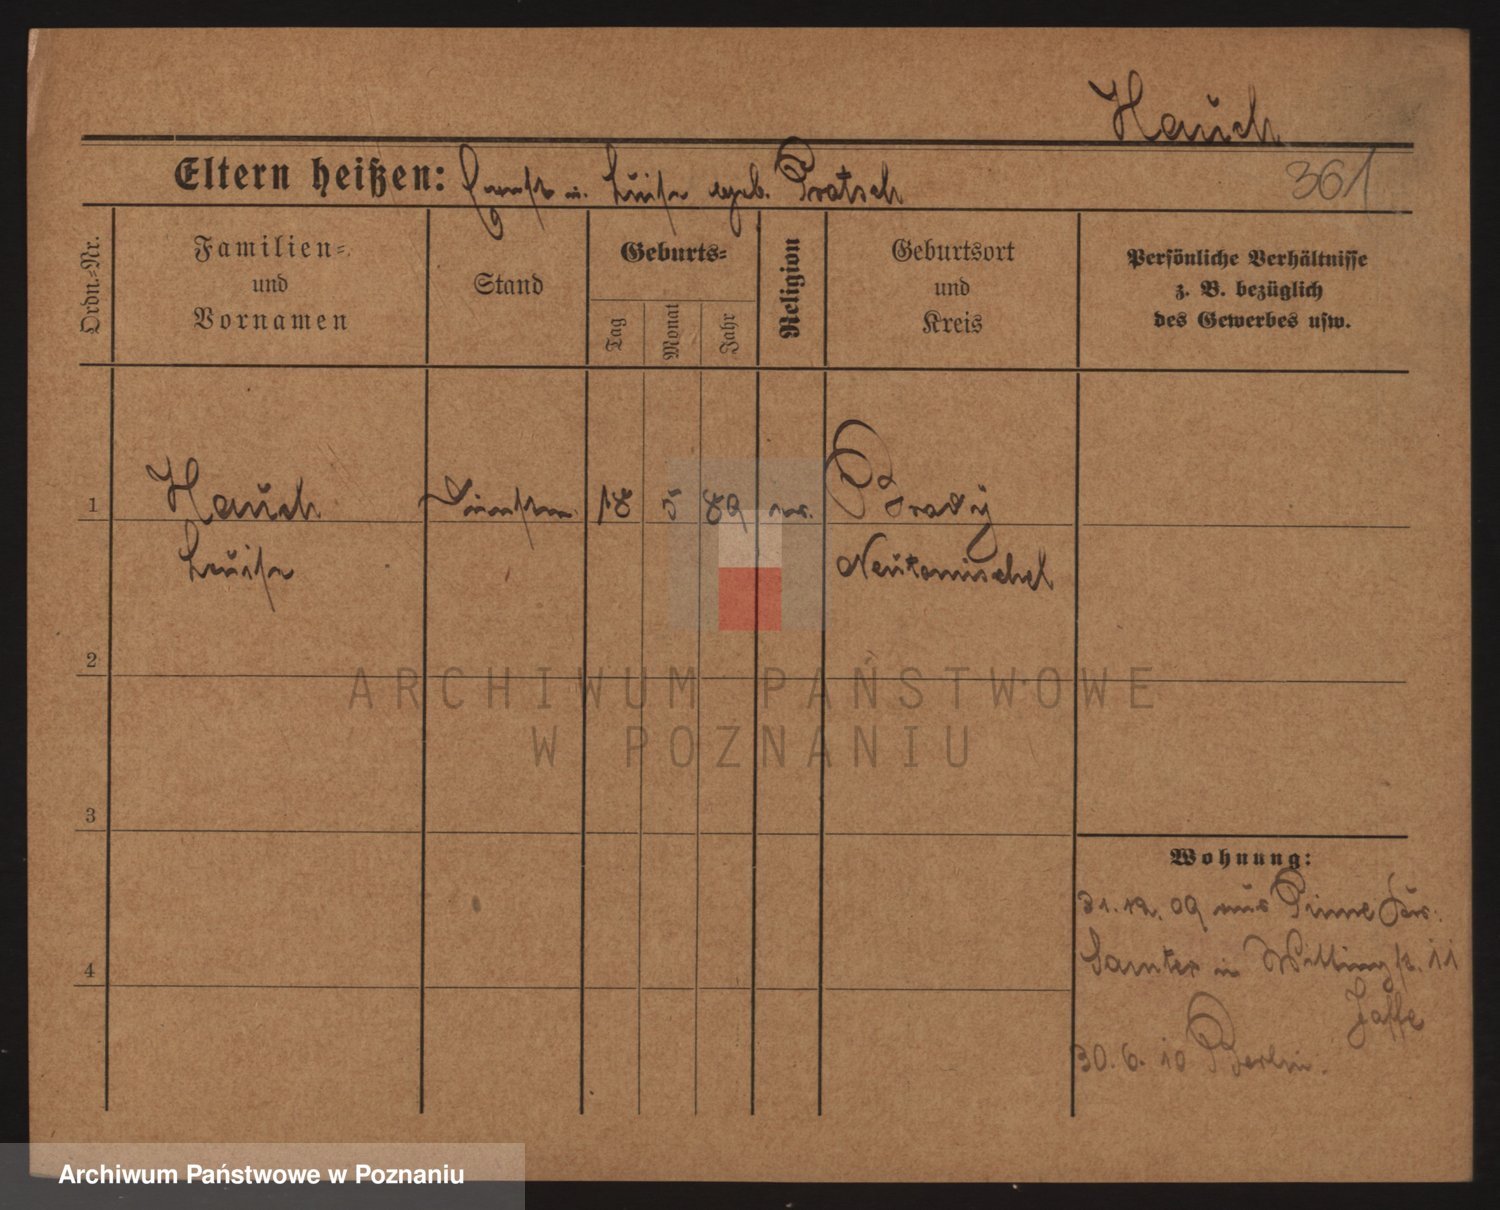 Hauch
Eltern heißen: Ernst u. Luise geb. Pratsch
361
Ordn.=Nr.
Familien=
und
Vornamen
Stand
Geburts=
Tag
Monat
Jahr
Religion
Geburtsort
und
Kreis
Persönliche Verhältnisse
z. B. bezüglich
des Gewerbes usw.
1
Hauch
18 5 89
Luise
Neutomischel
2
ARCHIWUM PAŃSTWOWE
W POZNANIU
3
4
Wohnung:
31.12.09 aus Pinne Krs.
Samter in 11
Jaffe
30.6.10 Berlin.
Archiwum Państwowe w Poznaniu